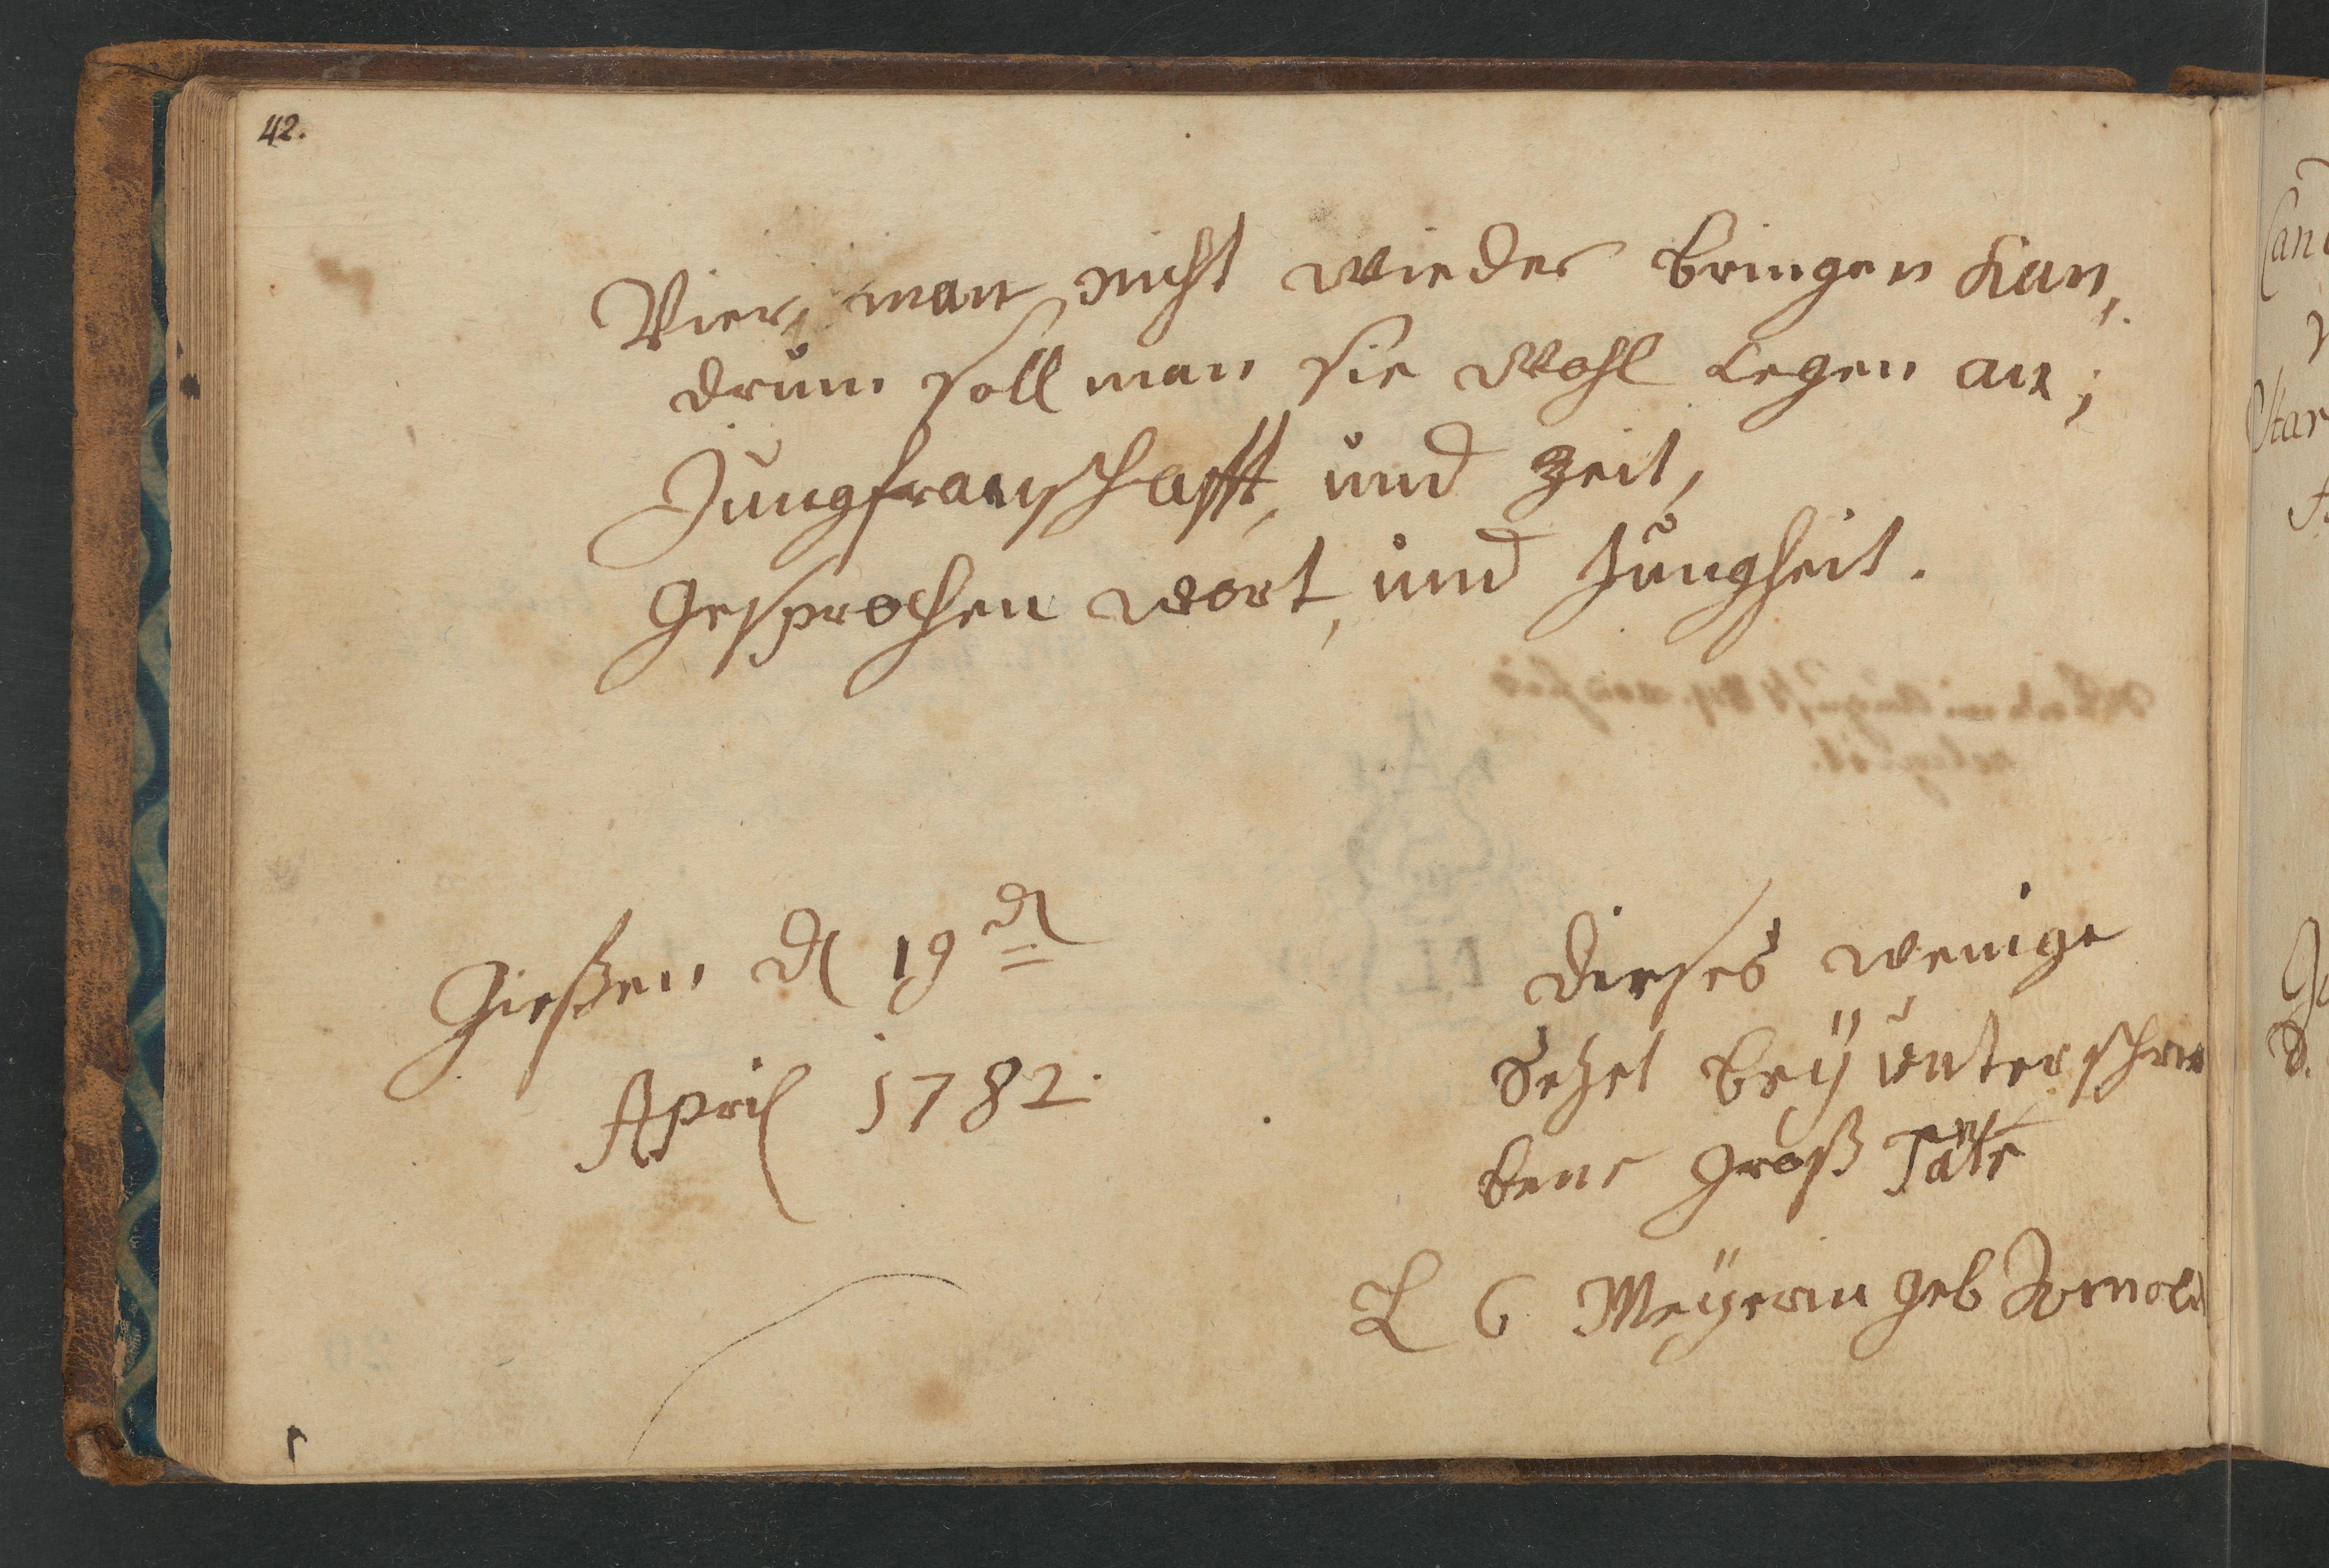 42.
Vier, man nicht wieder bringen kan,
drum soll man sie wohl Legen an;
Jungfrauschafft, und Zeit,
Gesprochen wort, und Jungheit.
Gießen d 19
April 1782.
dieses wenige
Setzet beÿ unterschrie
bene Groß Täte
L G Meÿerin geb Arnold